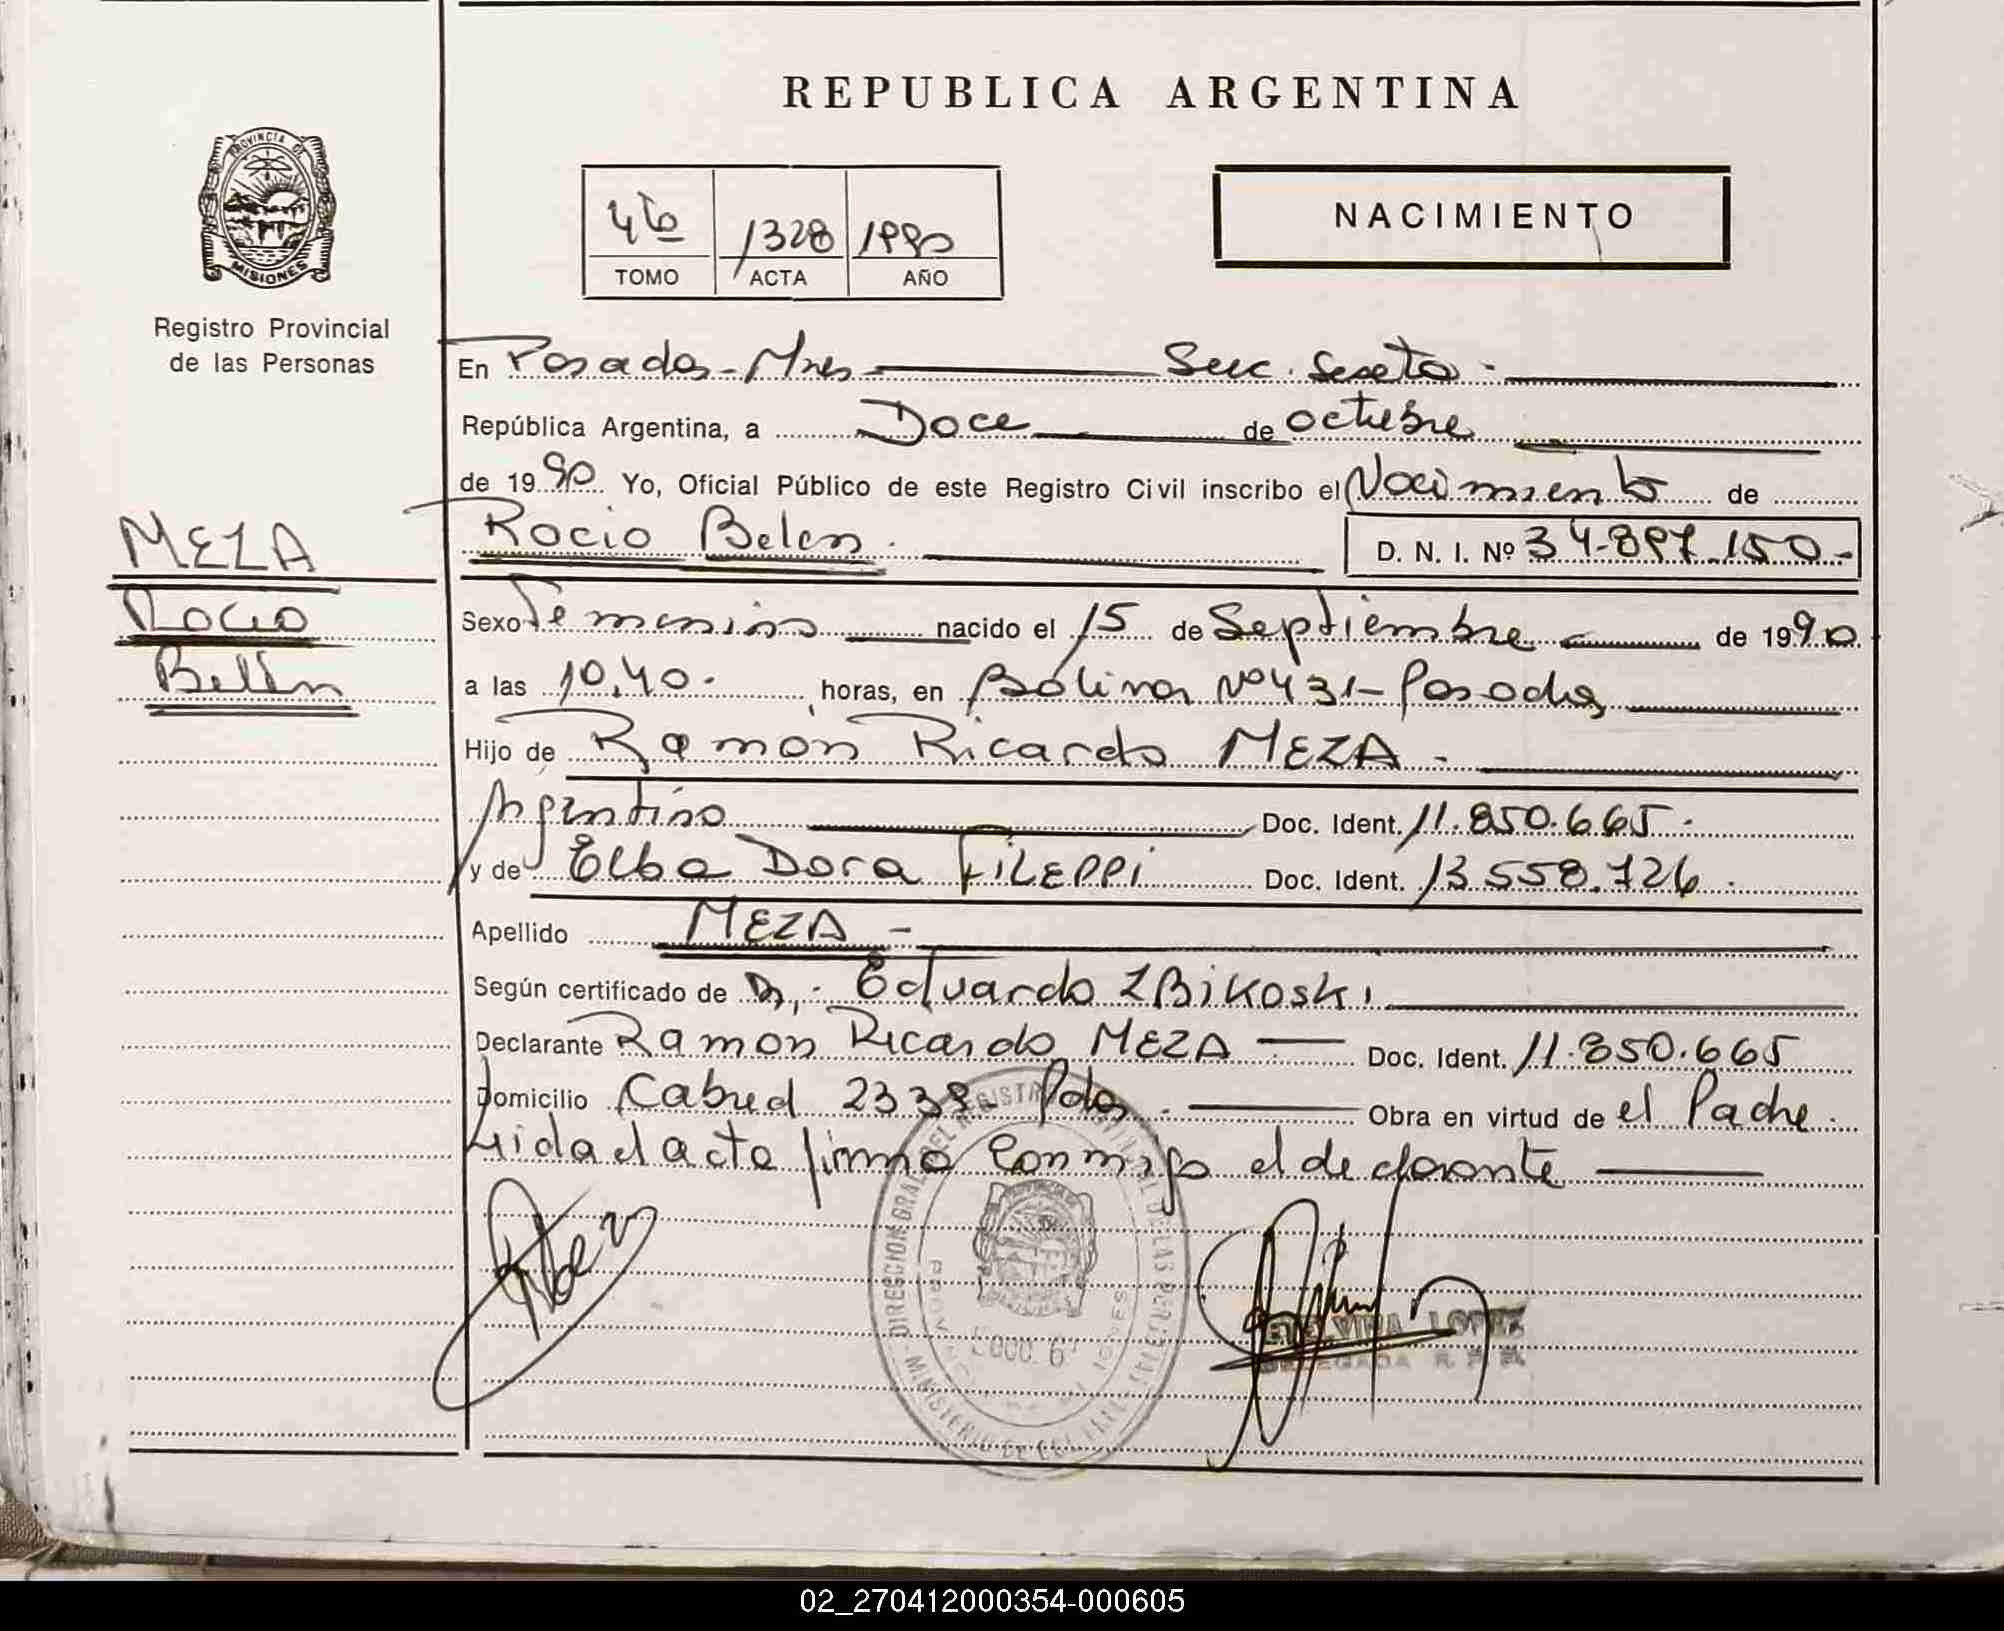 REPUBLICA ARGENTINA
PROVINCIA DE
MISIONES
Registro Provincial
de las Personas
4to 1328 1990
TOMO ACTA AÑO
NACIMIENTO
En Posadas - Mnes Secc. Sexta -
República Argentina, a Doce de octubre
de 1990 Yo, Oficial Público de este Registro Civil inscribo el Nacimiento de
MEZA
Rocio
Belén
Rocio Belen. D. N. I. Nº 34.897.150.-
Sexo Femenino nacido el 15 de Septiembre de 1990
a las 10,40. horas, en Bolivar Nº 431 - Posadas
Hijo de Ramon Ricardo MEZA -
Argentino Doc. Ident. 11.850.665.
y de Elba Dora FiLEPPi Doc. Ident. 13.558.726.
Apellido MEZA -
Según certificado de Dr. Eduardo ZBiKosKi
Declarante Ramon Ricardo MEZA Doc. Ident. 11.850.665
Domicilio Cabred 2338 - Pdas. Obra en virtud de el Padre.
Leida el acta firmó conmigo el declarante
DIRECCION GRAL DEL REGISTRO DE LAS PERSONAS
MINISTERIO DE
LOPEZ
DELEGADA R. P. P.
02_270412000354-000605